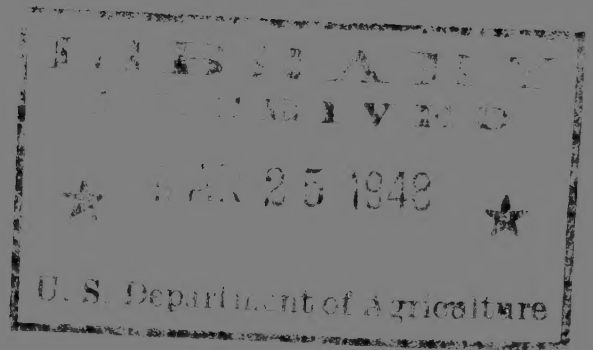 LIBRARY
RECEIVED
★ MAR 25 1948 ★
U. S. Department of Agriculture